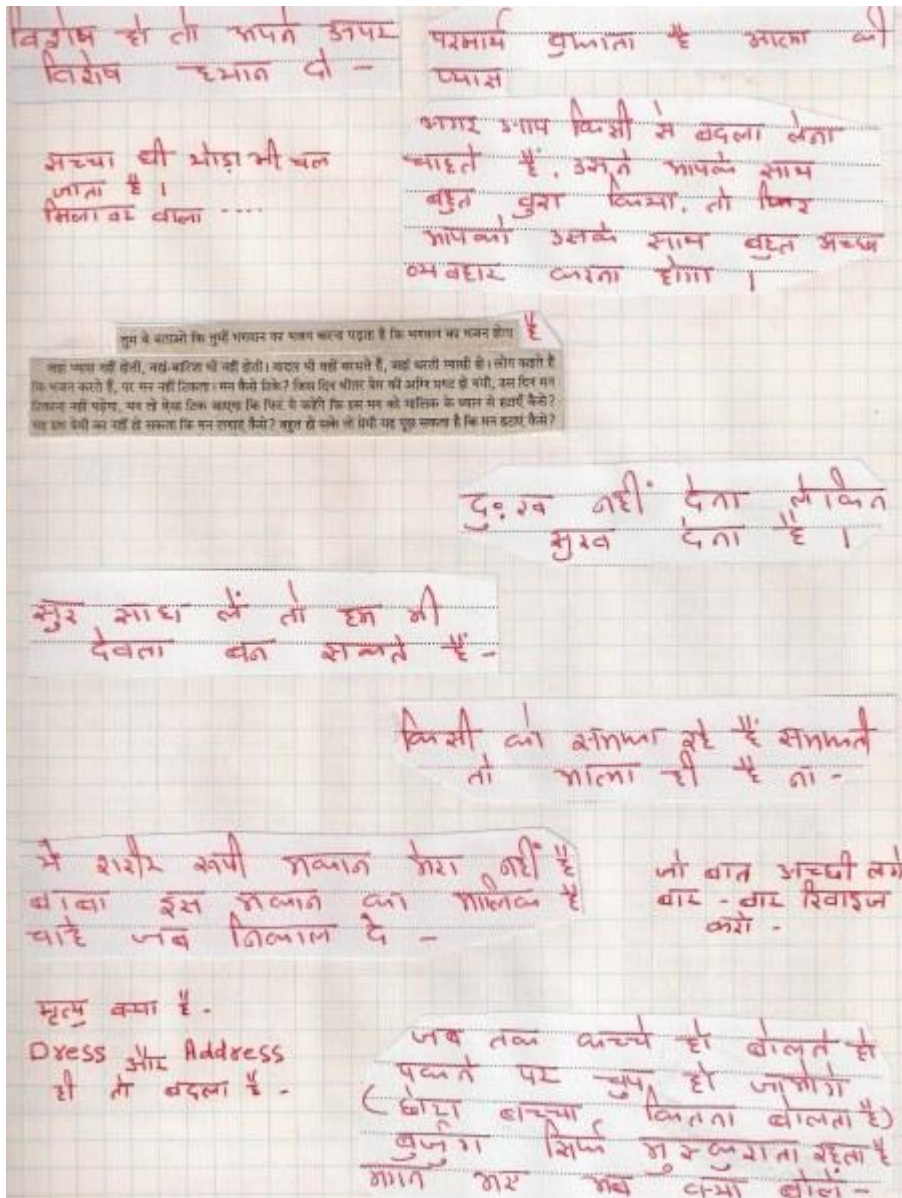 विशेष हो तो अपने ऊपर
विशेष ध्यान दो -
परमार्थ बुझाता है आत्मा की
प्यास
सच्चा घी थोड़ा भी चल
जाता है ।
मिलावट वाला ....
अगर आप किसी से बदला लेना
चाहते हैं, उसने आपके साथ
बहुत बुरा किया, तो फिर
आपको उसके साथ बहुत अच्छा
व्यवहार करना होगा ।
तुम ये बताओ कि तुम्हें भगवान का भजन करना पड़ता है कि भगवान का भजन होता है
जहां प्यास नहीं होती, वहां बारिश भी नहीं होती। बादल भी वहीं बरसते हैं, जहां धरती प्यासी हो। लोग कहते हैं
कि भजन करते हैं, पर मन नहीं टिकता। मन कैसे टिके? जिस दिन भीतर प्रेम की अग्नि प्रगट हो गयी, उस दिन मन
टिकाना नहीं पड़ेगा, मन तो ऐसा टिक जाएगा कि फिर ये कहेंगे कि इस मन को मालिक के ध्यान से हटाएँ कैसे?
यह प्रश्न प्रेमी का नहीं हो सकता कि मन लगाएं कैसे? बहुत हो सके तो प्रेमी यह पूछ सकता है कि मन हटाएं कैसे?
दुःख नहीं देना लेकिन
सुख देना है ।
सुर साध लें तो हम भी
देवता बन सकते हैं -
किसी को समझा रहे हैं समझते
तो आत्मा ही है ना -
ये शरीर रूपी मकान मेरा नहीं है
बाबा इस मकान का मालिक है
चाहे जब निकाल दे -
जो बात अच्छी लगे
बार - बार रिवाइज
करो -
मृत्यु क्या है -
Dress और Address
ही तो बदला है -
जब तक कच्चे हो बोलते हो
पकने पर चुप हो जाओगे
(छोटा बच्चा कितना बोलता है)
बुजुर्ग सिर्फ मुस्कुराता रहता है
मगन भए अब क्या बोलें -